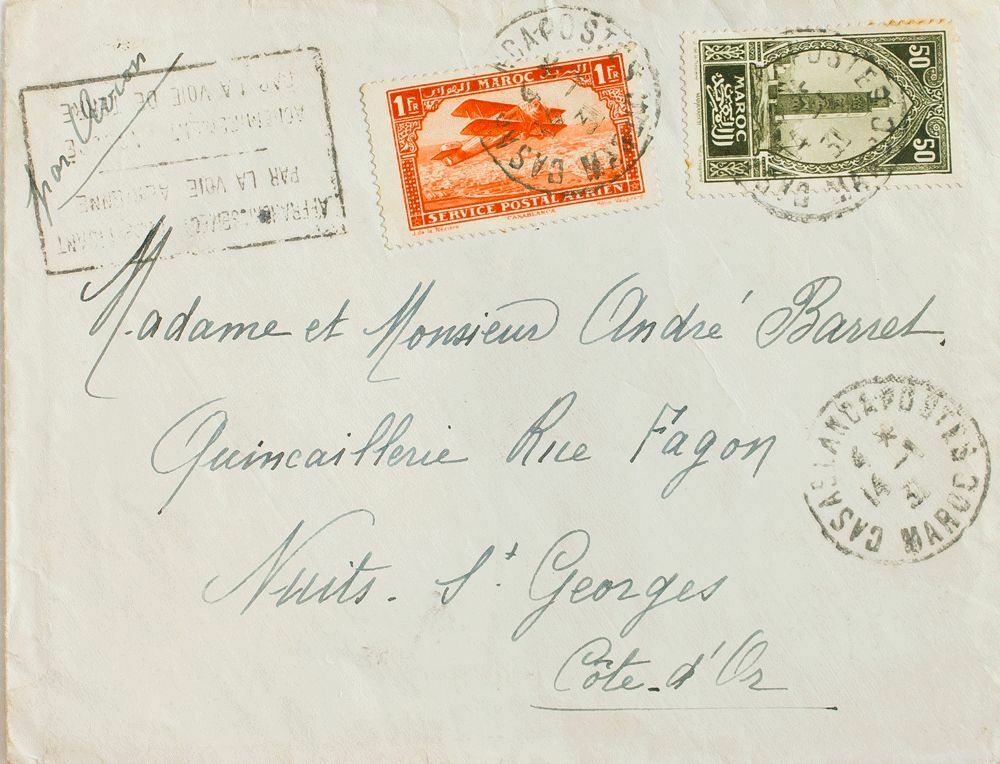 par avion
PAR LA VOIE DE
PAR LA VOIE AERIENNE
1FR MAROC 1FR
SERVICE POSTAL AÉRIEN
CASABLANCA
J. de la Nézière
50 MAROC 50
CASABLANCA POSTES
MAROC
Madame et Monsieur André Barret.
Quincaillerie Rue Fagon
Nuits. St Georges
Côte-d'Or
CASABLANCA POSTES
14 7 31
MAROC